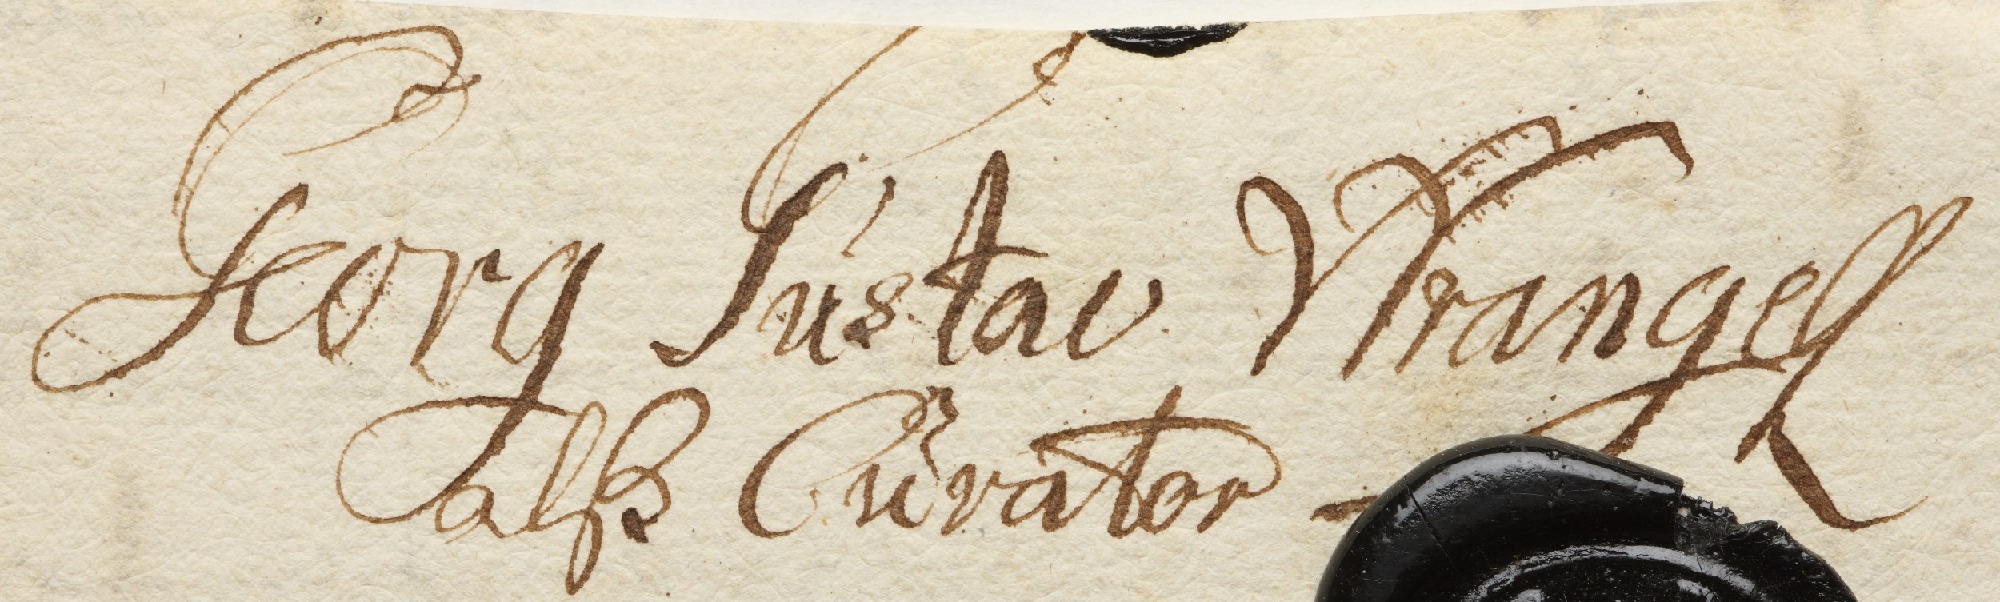 Georg Gustav Wrangell
alß Curator